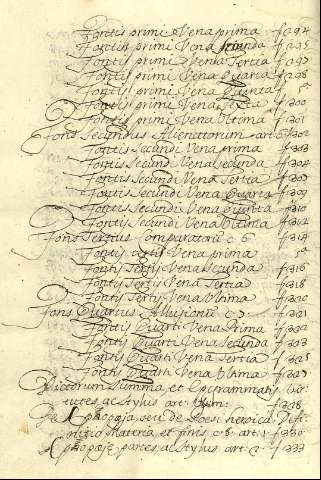 Fontis primi Vena prima f 294
Fontis primi Vena secunda f 295
Fontis primi Vena Tertia f 297
Fontis primi Vena Quarta f 298
Fontis primi Vena Quinta
Fontis primi Vena Sexta f 300
Fontis primi Vena Ultima f 301
Fons Secundus Allenctorum art. 6 f 302
Fontis Secundi Vena prima f 303
Fontis Secundi Vena secunda f 304
Fontis Secundi Vena Tertia f 305
Fontis Secundi Vena Quarta f 309
Fontis Secundi Vena Quinta f 310
Fontis Secundi Vena Ultima f 312
Fons Tertius Comparatorũ c 6 f 314
Fontis Vena prima
Fontis Tertij Vena secunda f 316
Fontis Tertij Vena Tertia f 318
Fontis Tertij Vena Ultima f 320
Fons Quartus Allusionũ c 7 f 321
Fontis Quarti Vena Prima f 322
Fontis Quarti Vena Secunda f 323
Fontis Quarti Vena Tertia f 325
Fontis Quarti Vena Ultima f 327
Dictorum Summa, et Epigrammatis Vir-
tutes ac Stylus art. Ultim. f 328
De Epopœja, seu de Poesi heroica Diffi-
nitio Materia, et finis c 8 art. 1 f 330
Epopœjæ partes, ac Stylus art. 2 f 333